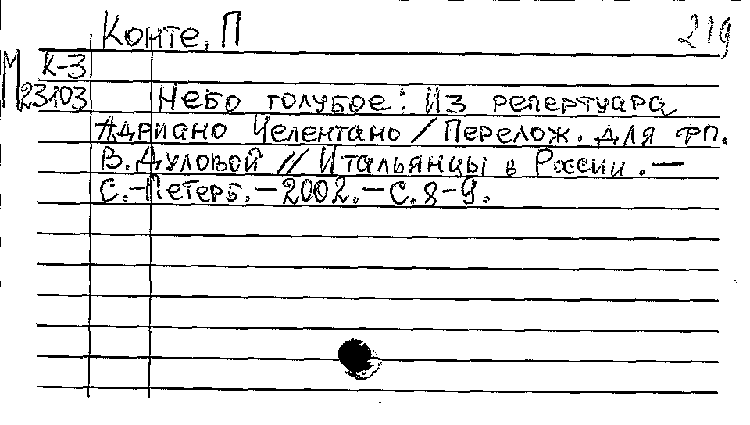 Конте, П 219
М К-3
23103 Небо голубое: Из репертуара
Адриано Челентано / Перелож. для фп.
В. Дуловой // Итальянцы в России. —
С.-Петерб. — 2002. — С. 8-9.